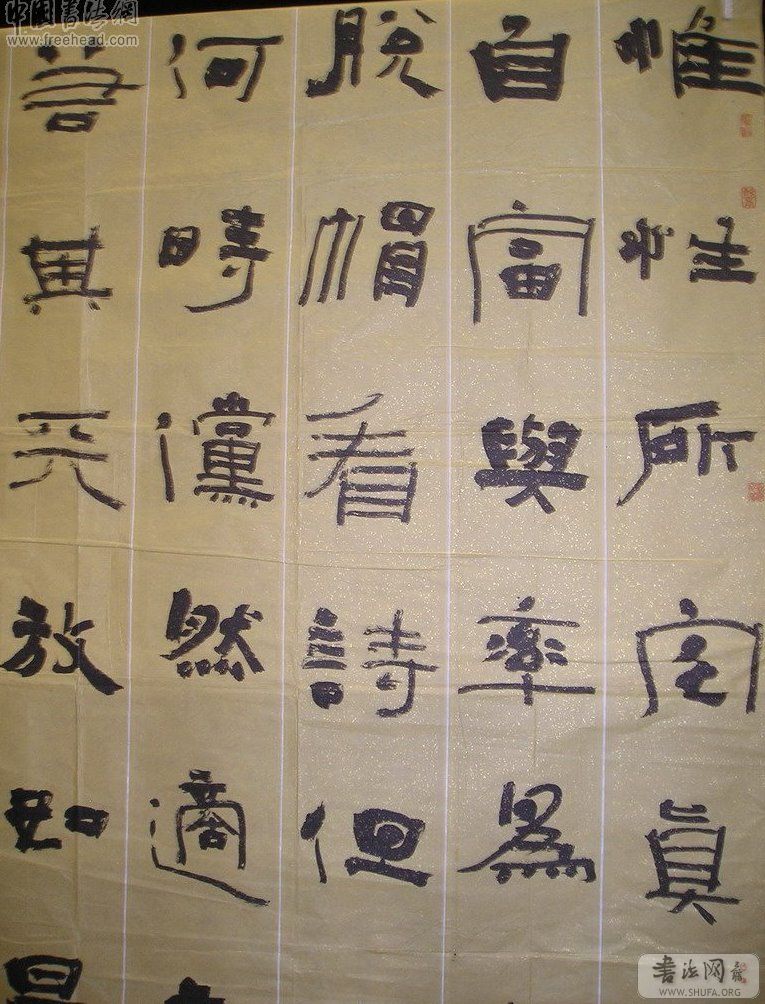 中国書法網
www.freehead.com
惟性所宅真
自富與率為
脱帽看詩但
河時灙然適
若其天放如
書法网
WWW.SHUFA.ORG